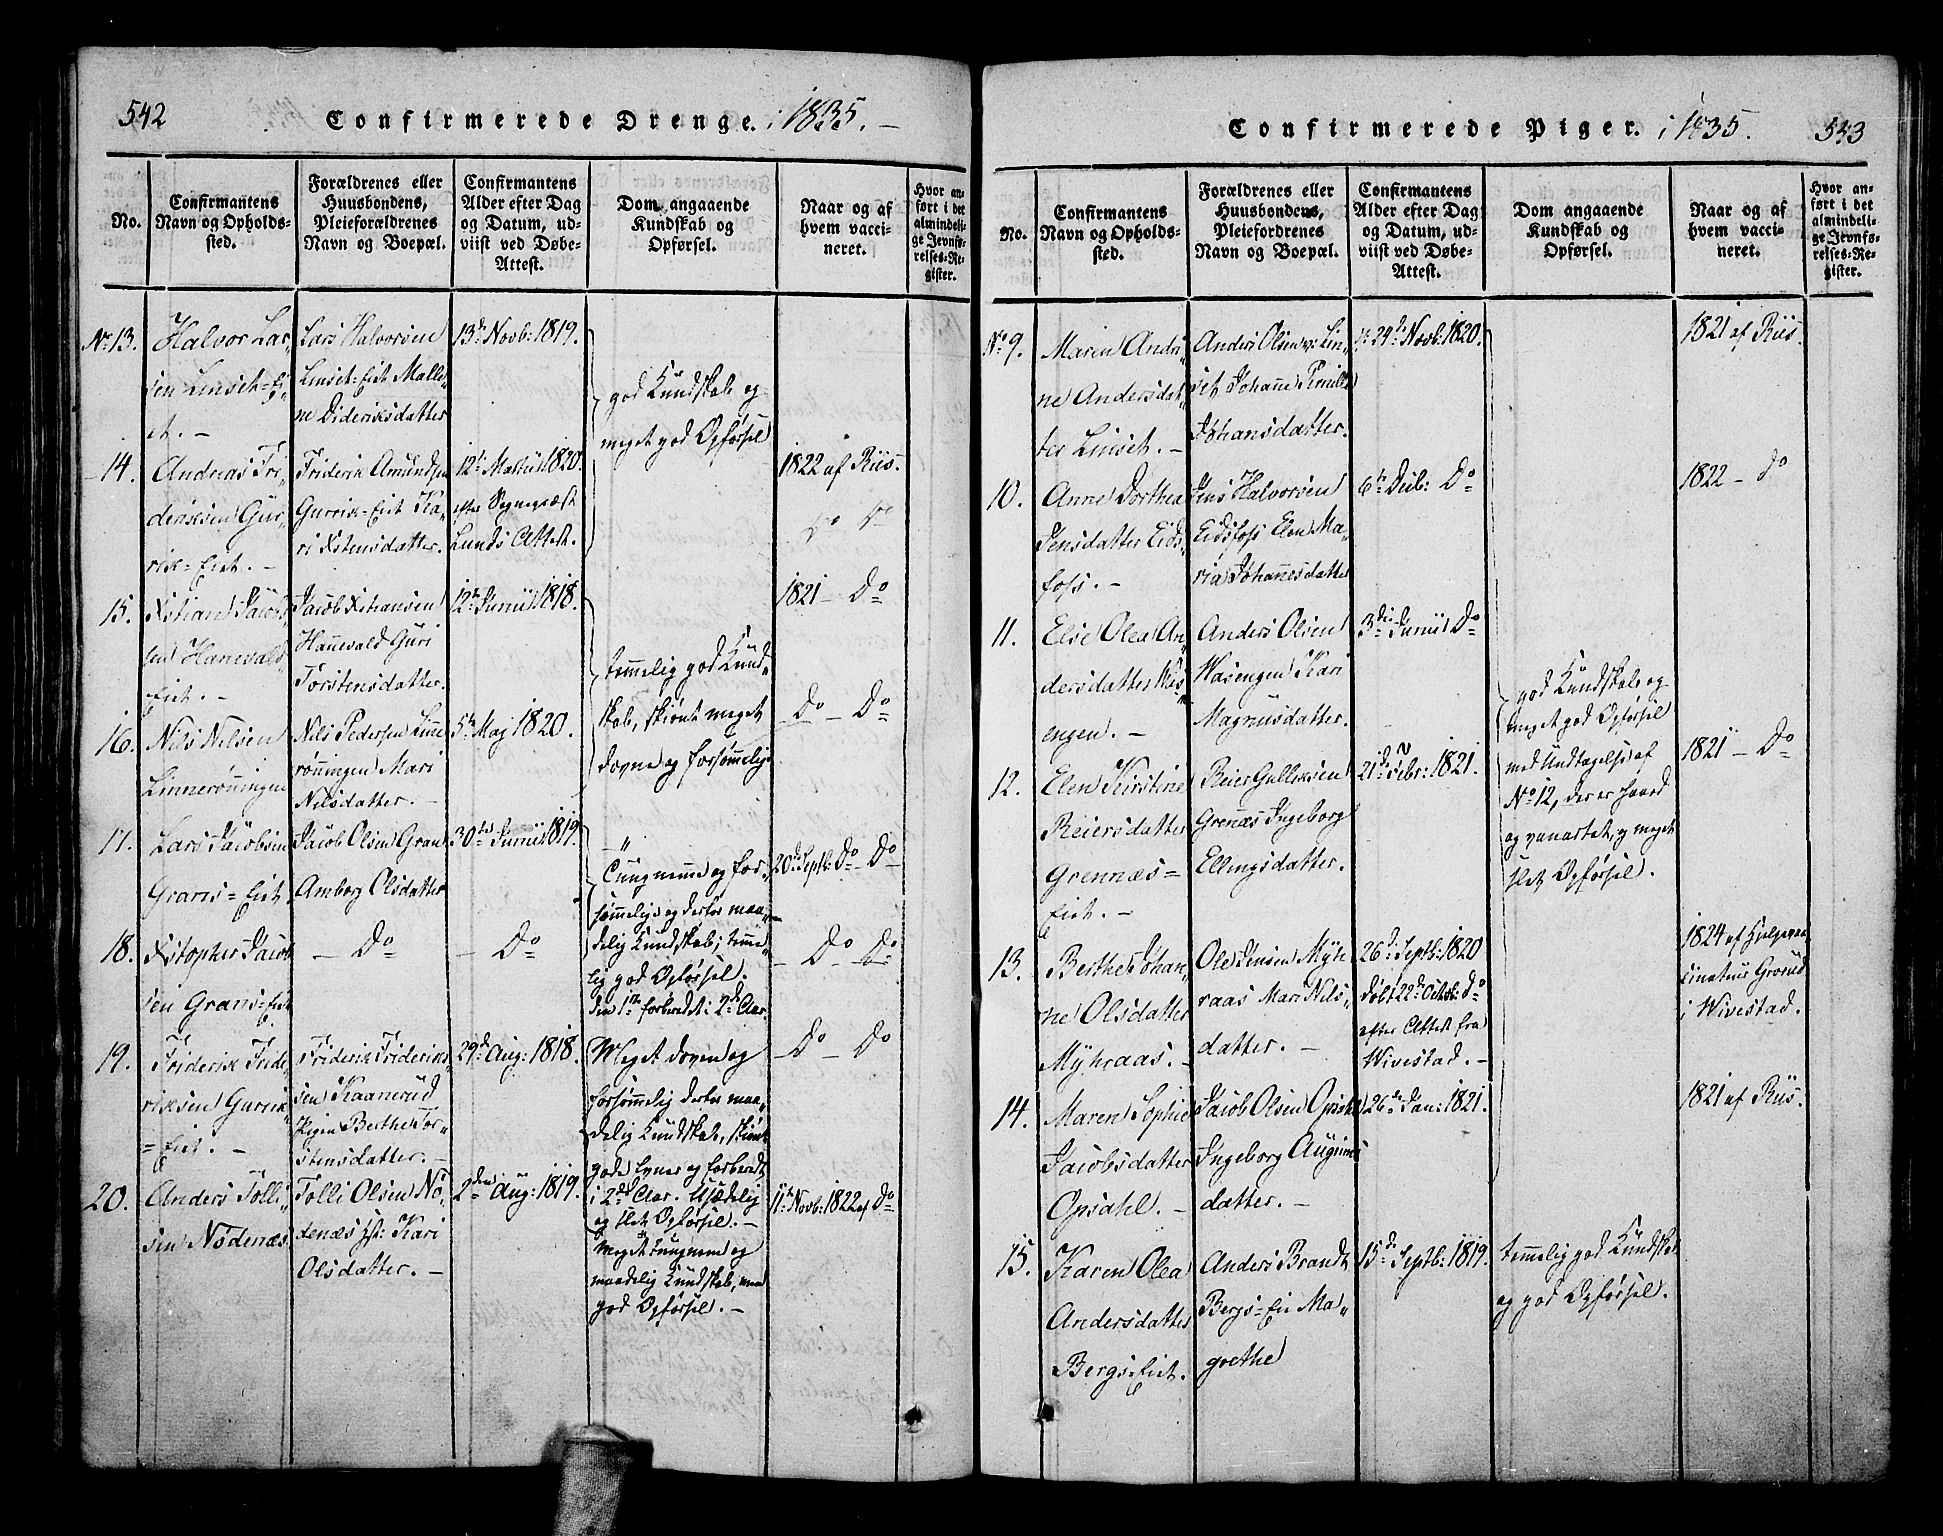 542
Confirmerede Drenge. i 1835. –
No.
Confirmantens
Navn og Opholds-
sted.
Forældrenes eller
Huusbondens,
Pleieforældrenes
Navn og Boepæl.
Confirmantens
Alder efter Dag
og Datum, ud-
viist ved Døbe-
Attest.
Dom angaaende
Kundskab og
Opførsel.
Naar og af
hvem vacci-
neret.
Hvor an-
ført i det
almindeli-
ge Jevnfø-
relses-Re-
gister.
No 13.
Halvor Lar„
sen Linset=Ei„
et. –
Lars Halvorsen
Linset=Eiet Malle„
ne Dideriksdatter
13d Novb: 1819.
god Kundskab og
meget god Opførsel
14.
Andreas Fri„
deriksen Gur„
rik=Eiet. –
Friderik Amundsen
Gurrik=Eiet Ka„
ri Xstensdatter.
12te Martii 1820.
efter Sognepræst
Lunds Attest.
1822 af Riis.
Do Do
15.
Xstian Jacob„
sen Hanevald
Eiet. –
Jacob Xstiansen
Hanevald Guri
Torstensdatter.
12te Junii 1818.
temmelig god Kund„
skab, skiønt meget
doven og forsømmelig
1821 – Do
16.
Nils Nilsen
Linnerønningen
Nils Pedersen Linne
rønningen Mari
Nilsdatter. –
5te Maj 1820.
– Do – Do
17.
Lars Jacobsen
Grans=Eiet
Jacob Olsen Gran
Amborg Olsdatter
30te Junii 1819.
– „
Tungnemme og for„
sømmelige og derfor maa„
delig Kundskab; temme„
lig god Opførsel.
den 1te forberedt i 2det Aar.
20de Septb: Do – Do
18.
Xstopher Jacob
sen Grans=Eiet
– Do
– Do
– Do – Do
19.
Friderik Fride„
riksen Gurrik„
=Eiet. –
Friderik Frideriks„
sen Kaanerud
Pigen Berthe Tor„
stensdatter. –
29d Aug: 1818.
Meget doven og
forsømmelig derfor maa„
delig Kundskab, skiønt
gode Evner og forberedt
i 2det Aar. Usædelig
og slet Opførsel. –
– Do – Do
20.
Anders Tolli„
sen Nødenæs
Tolli Olsen Nø„
denæs Kari
Olsdatter. –
2den Aug: 1819.
Meget tungnem og
maadelig Kundskab, men
god Opførsel. –
11te Novb: 1822 af Do
Confirmerede Piger. i 1835.
543
No.
Confirmantens
Navn og Opholds-
sted.
Forældrenes eller
Huusbondens,
Pleiefordrenes
Navn og Boepæl.
Confirmantens
Alder efter Dag
og Datum, ud-
viist ved Døbe-
Attest.
Dom angaaende
Kundskab og
Opførsel.
Naar og af
hvem vacci-
neret.
Hvor an-
ført i det
almindeli-
ge Jevnfø-
relses-Re-
gister.
No 9.
Maren Andri„
ne Andersdat„
ter Linset. –
Anders Olsen Lin„
set Johanne Pernille
Johansdatter.
24de Novb: 1820.
1821 af Riis.
10.
Anne Dorthea
Jensdatter Eids„
foss. –
Jens Halvorsen
Eidsfoss Elen Ma„
ria Johannesdatter
6te Decb: Do
1822 – Do
11.
Else Olea An„
dersdatter Was„
engen. –
Anders Olsen
Wasengen Kari
Magnusdatter.
3die Junii Do
god Kundskab og
meget god Opførsel
med Undtagelse af
No 12, der er haard
og vanartet, og meget
slet Opførsel.
12.
Elen Kirstine
Reiersdatter
Grennæs=
Eiet. –
Reier Gulleksen
Grenæs Ingeborg
Ellingsdatter.
21de Febr: 1821.
1821 – Do
13.
Berthe Johan„
ne Olsdatter
Myhraas. –
Ole Jensen Myh
raas Mari Nils„
datter. –
26d Septb: 1820
døbt 22d Octob: Do
efter Attest fra
Wivestad. –
1824 af Hjelpevac
cinatur Grorud
i Wivestad.
14.
Maren Sophie
Jacobsdatter
Opsahl. –
Jacob Olsen Opsahl
Ingeborg Auguns
datter. –
26de Jan: 1821.
1821 af Riis.
15.
Karen Olea
Andersdatter
Bergs=Eiet.
Anders Brandt
Bergs=Eie Ma„
grethe
15d Septb: 1819.
temmelig god Kundskab
og god Opførsel.